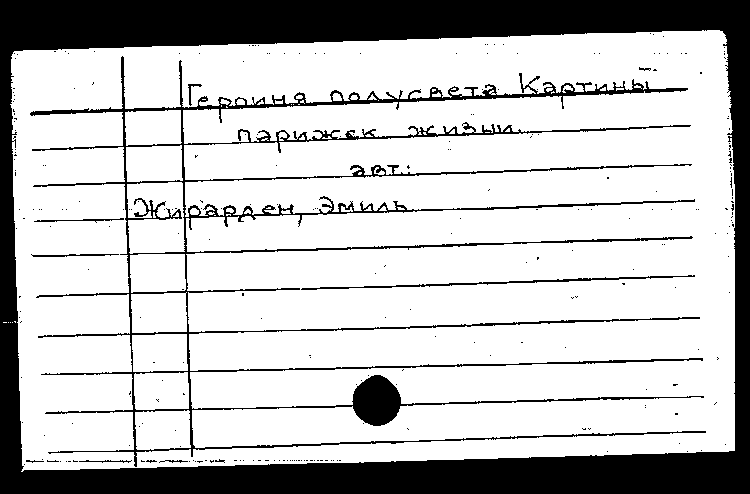 Героиня полусвета. Картины
парижск жизни.
авт.:
Жирарден, Эмиль